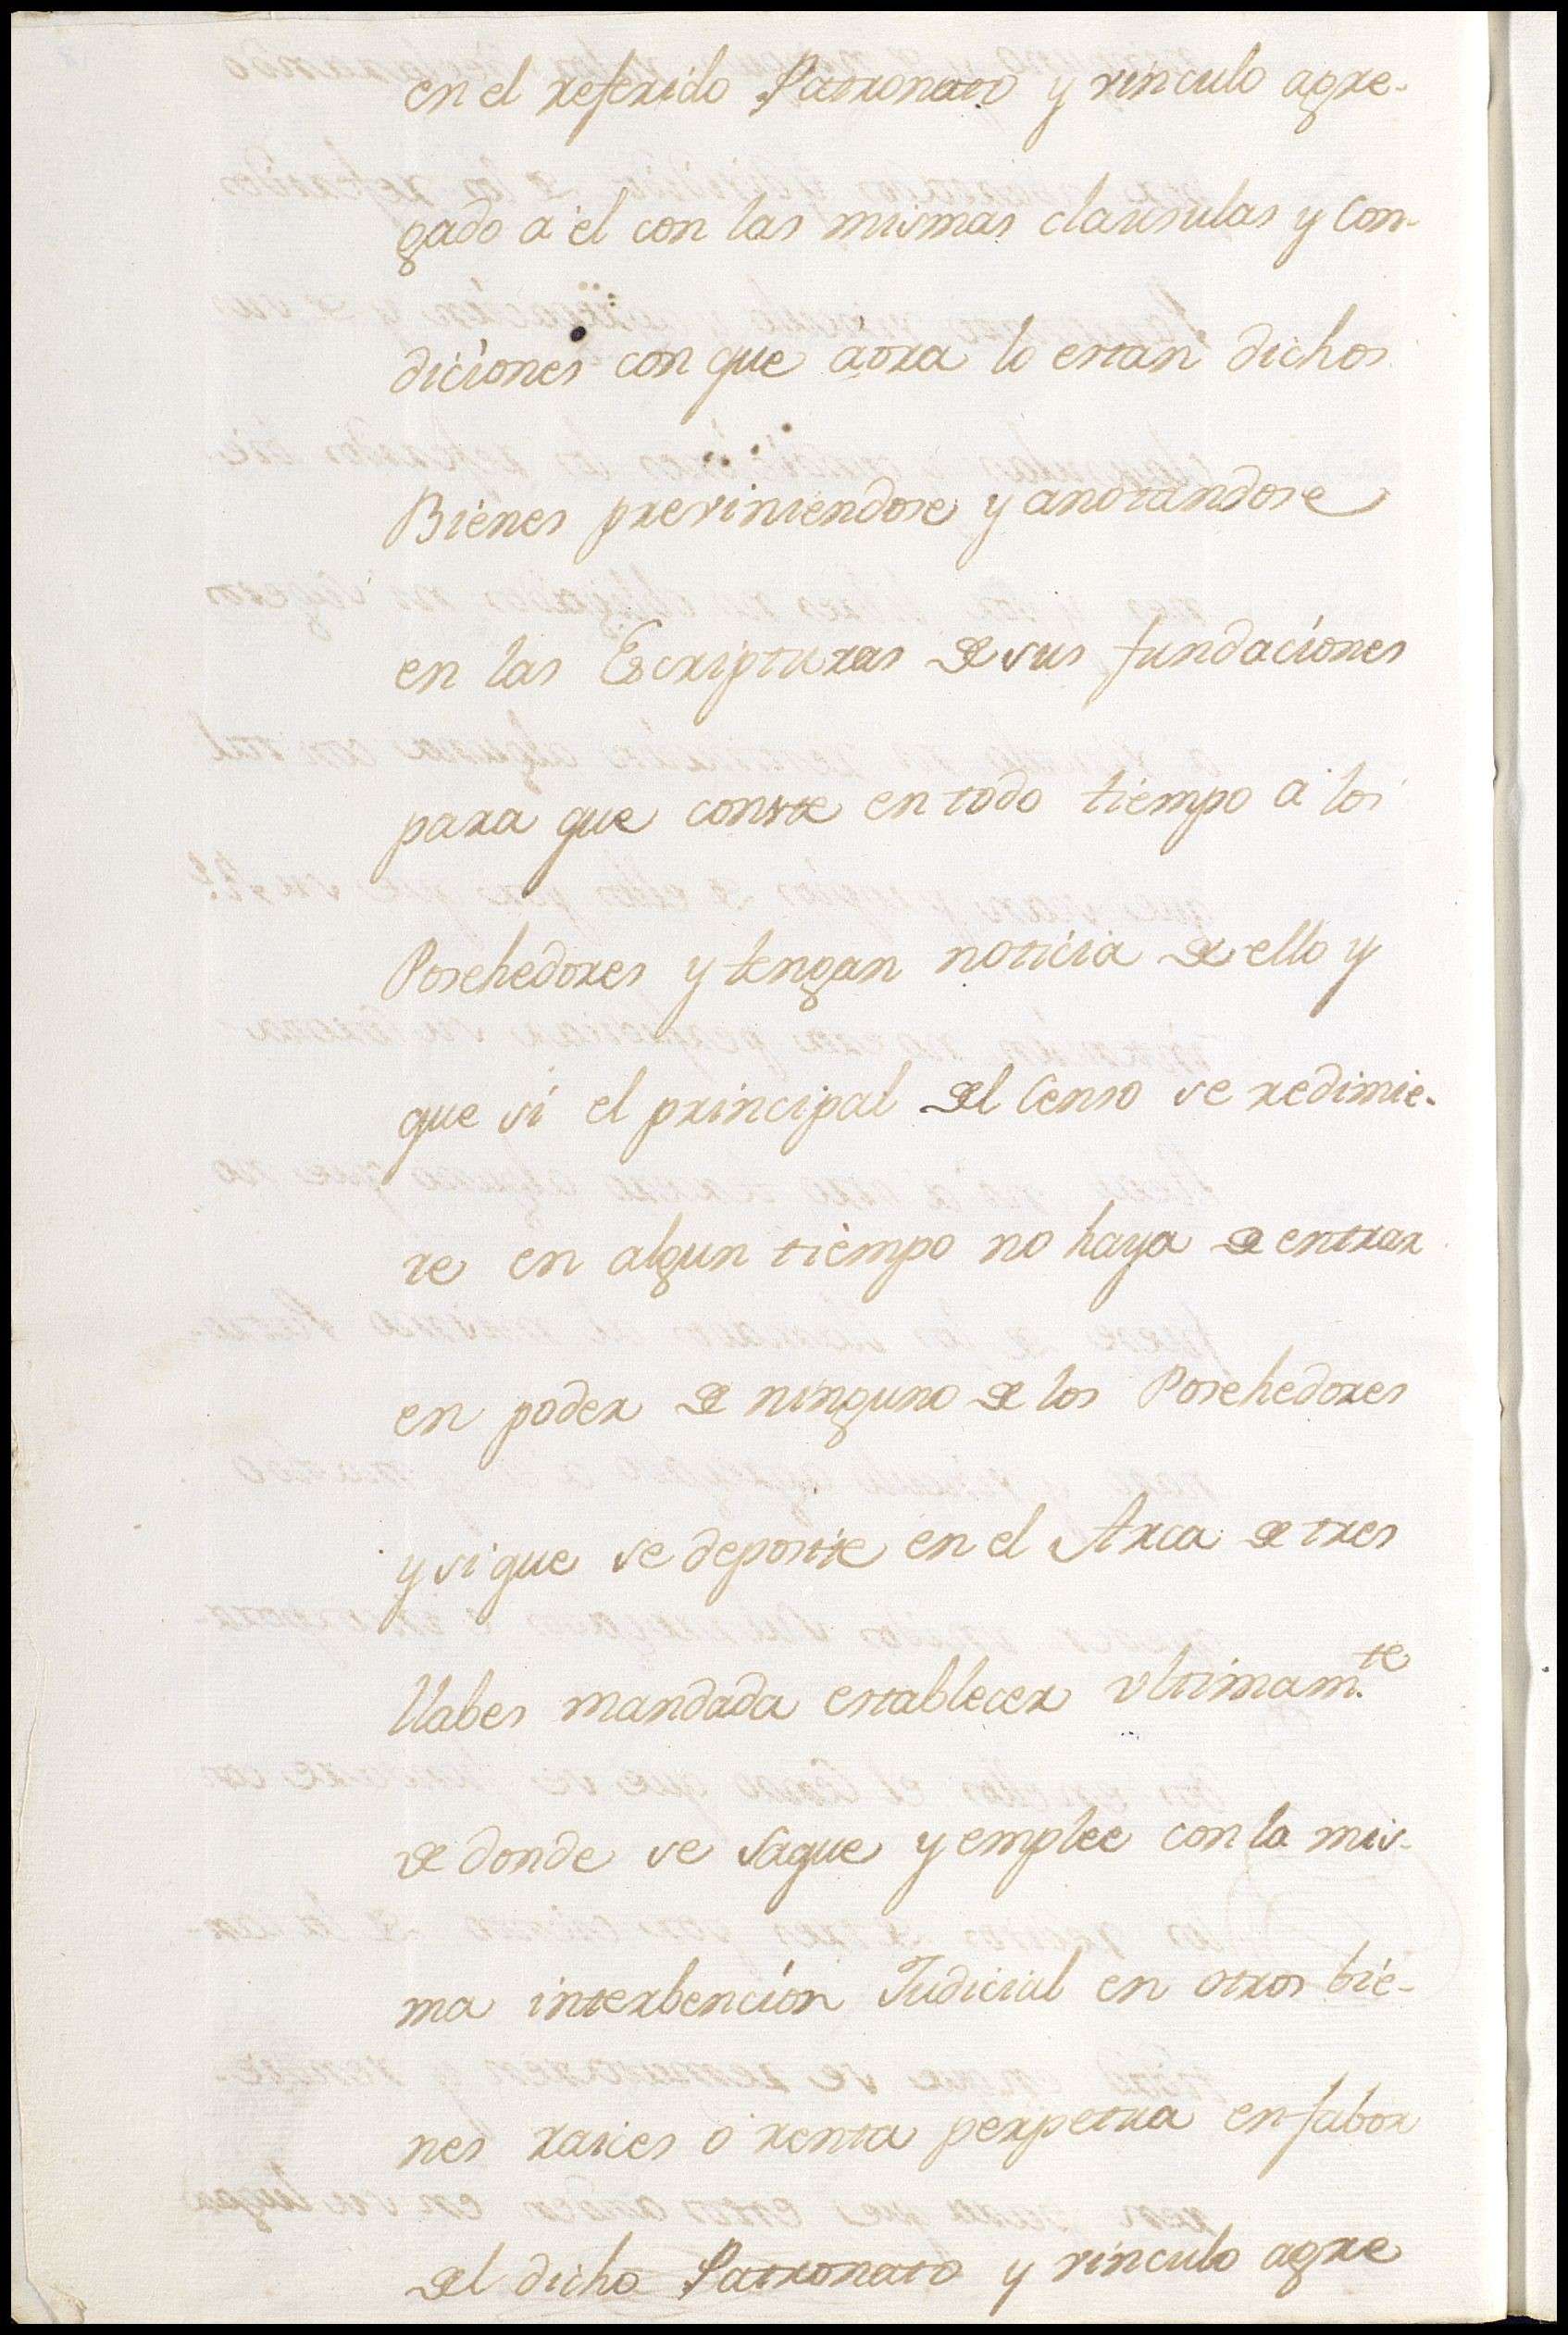 en el referido Patronato y vinculo agre-
gado a el con las mismas clausulas y Con-
diciones con que aora lo estan dichos
Bienes previniendose y anotandose
en las Escripturas de sus fundaciones
para que conste en todo tiempo a los
Posehedores y tengan noticia de ello y
que si el principal del Censo se redimie-
re en algun tiempo no haya de entrar
en poder de ninguno de los Posehedores
y si que se deposite en el Arca de tres
llabes mandada establecer ultimam.te
de donde se saque y emplee con la mis-
ma interbencion Judicial en otros bie-
nes raices o renta perpetua en fabor
del dicho Patronato y vinculo agre